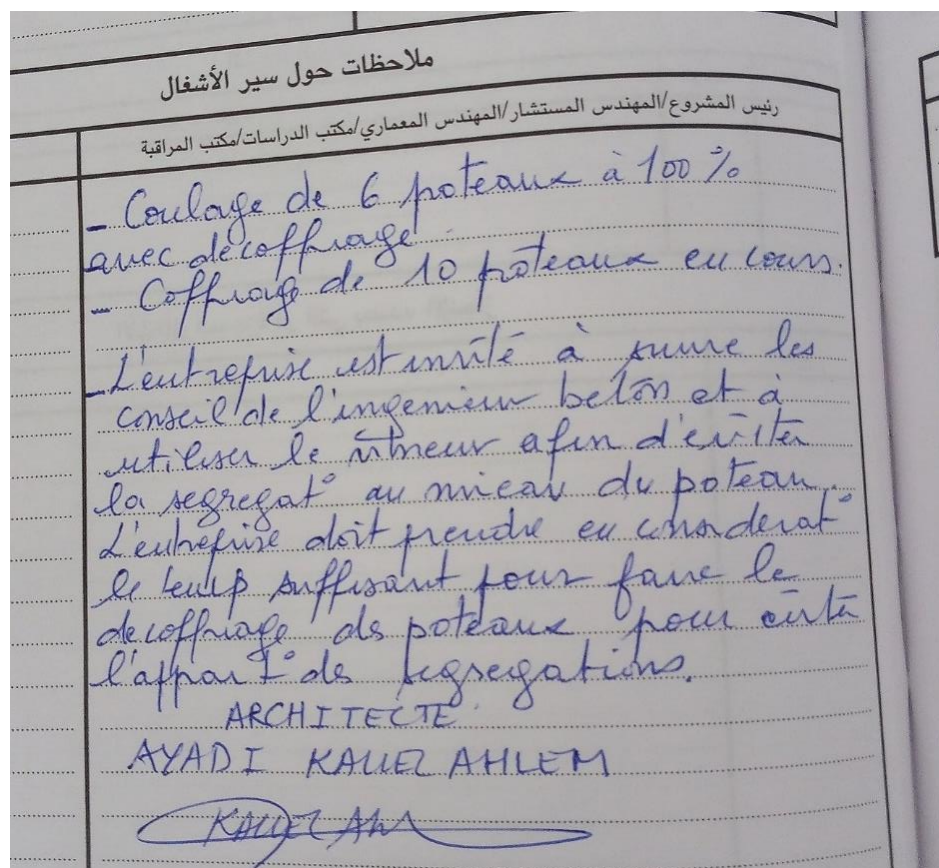 ملاحظات حول سير الأشغال
رئيس المشروع/المهندس المستشار/المهندس المعماري/مكتب الدراسات/مكتب المراقبة
- Coulage de 6 poteaux à 100 %
avec decoffrage
- Coffrage de 10 poteaux en cours.
- L'entreprise est invité à suivre les
conseil de l'ingenieur beton et à
utiliser le vibreur afin d'eviter
la segregat° au niveau du poteau.
L'entreprise doit prendre en considerat°
le temp suffisant pour faire le
decoffrage des poteaux pour eviter
l'apparit° des segregations.
ARCHITECTE
AYADI KAUEZ AHLEM
KAUEZ Ah